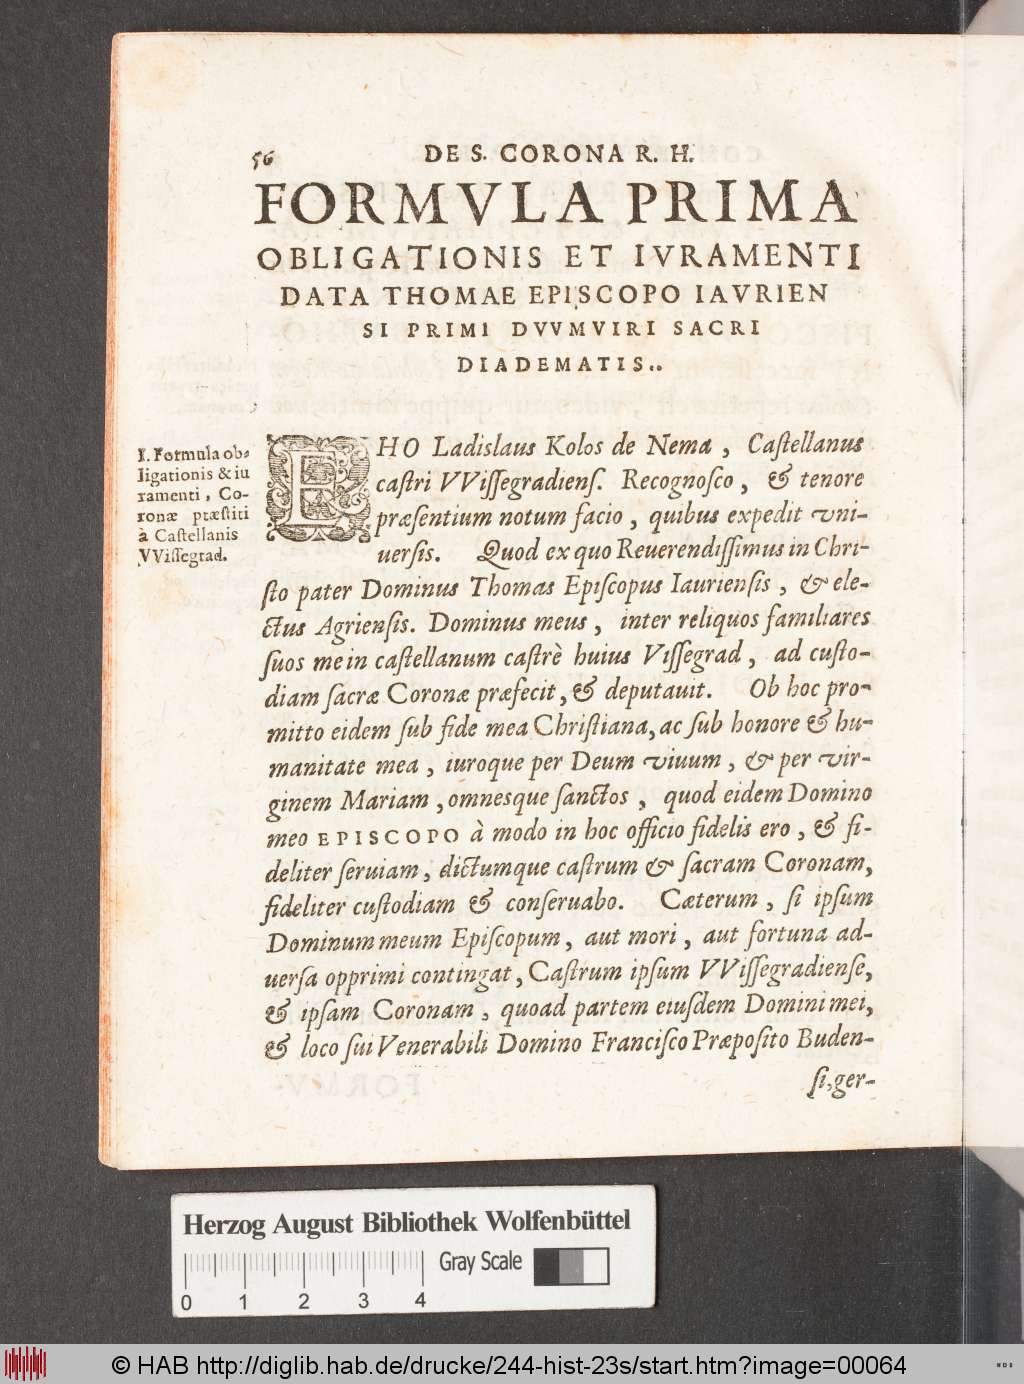 56
DE S. CORONA R. H.
FORMVLA PRIMA
OBLIGATIONIS ET IVRAMENTI
DATA THOMAE EPISCOPO IAVRIEN
SI PRIMI DVVMVIRI SACRI
DIADEMATIS..
I. Formula ob-
ligationis & iu
ramenti, Co-
ronæ præstiti
à Castellanis
VVissegrad.
EHO Ladislaus Kolos de Nema, Castellanus
castri VVissegradiens. Recognosco, & tenore
præsentium notum facio, quibus expedit vni-
uersis. Quod ex quo Reuerendissimus in Chri-
sto pater Dominus Thomas Episcopus Iauriensis, & ele-
ctus Agriensis. Dominus meus, inter reliquos familiares
suos me in castellanum castrè huius Vissegrad, ad custo-
diam sacræ Coronæ præfecit, & deputauit. Ob hoc pro-
mitto eidem sub fide mea Christiana, ac sub honore & hu-
manitate mea, iuroque per Deum viuum, & per vir-
ginem Mariam, omnesque sanctos, quod eidem Domino
meo EPISCOPO à modo in hoc officio fidelis ero, & fi-
deliter seruiam, dictumque castrum & sacram Coronam,
fideliter custodiam & conseruabo. Cæterum, si ipsum
Dominum meum Episcopum, aut mori, aut fortuna ad-
uersa opprimi contingat, Castrum ipsum VVissegradiense,
& ipsam Coronam, quoad partem eiusdem Domini mei,
& loco sui Venerabili Domino Francisco Præposito Buden-
si, ger-
Herzog August Bibliothek Wolfenbüttel
Gray Scale
0 1 2 3 4
© HAB http://diglib.hab.de/drucke/244-hist-23s/start.htm?image=00064